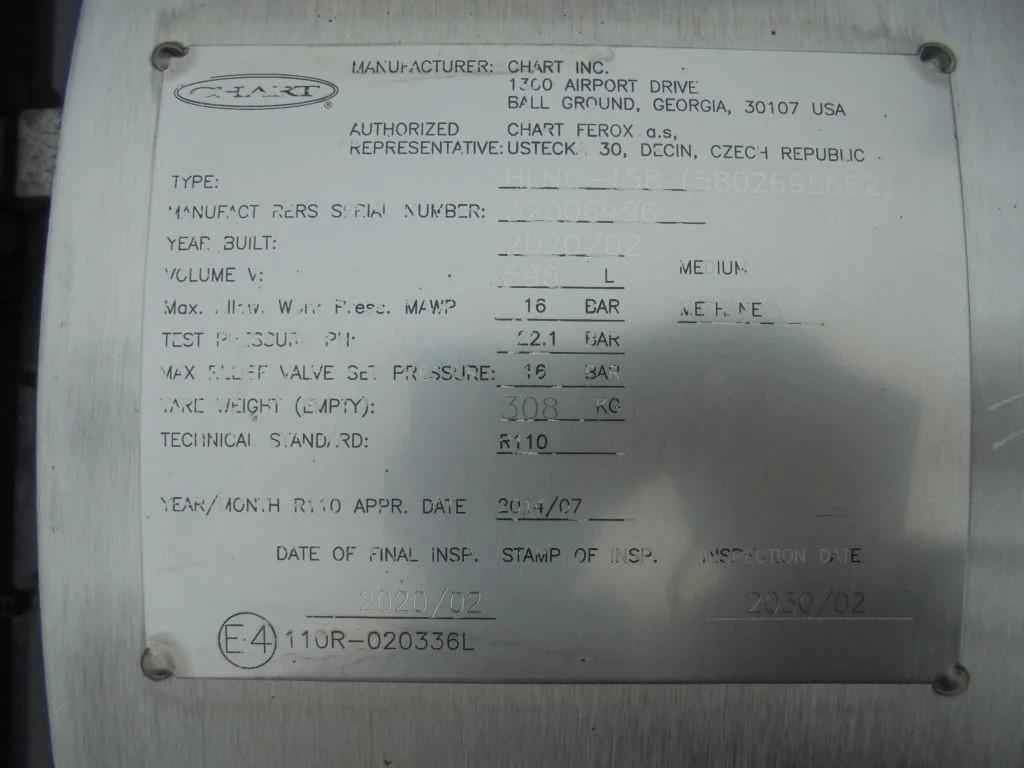 CHART ®
MANUFACTURER: CHART INC.
1300 AIRPORT DRIVE
BALL GROUND, GEORGIA, 30107 USA
AUTHORIZED CHART FEROX a.s,
REPRESENTATIVE: USTECKA 30, DECIN, CZECH REPUBLIC
TYPE:
MANUFACTURERS SERIAL NUMBER:
YEAR BUILT: 2020/02
VOLUME V: L MEDIUM
Max. Allow. Work Press. MAWP 16 BAR METHANE
TEST PRESSURE PH: 22.1 BAR
MAX RELIEF VALVE SET PRESSURE: 16 BAR
TARE WEIGHT (EMPTY): 308 KG
TECHNICAL STANDARD: R110
YEAR/MONTH R110 APPR. DATE 2014/07
DATE OF FINAL INSP. STAMP OF INSP. INSPECTION DATE
2020/02 2030/02
E4 110R-020336L